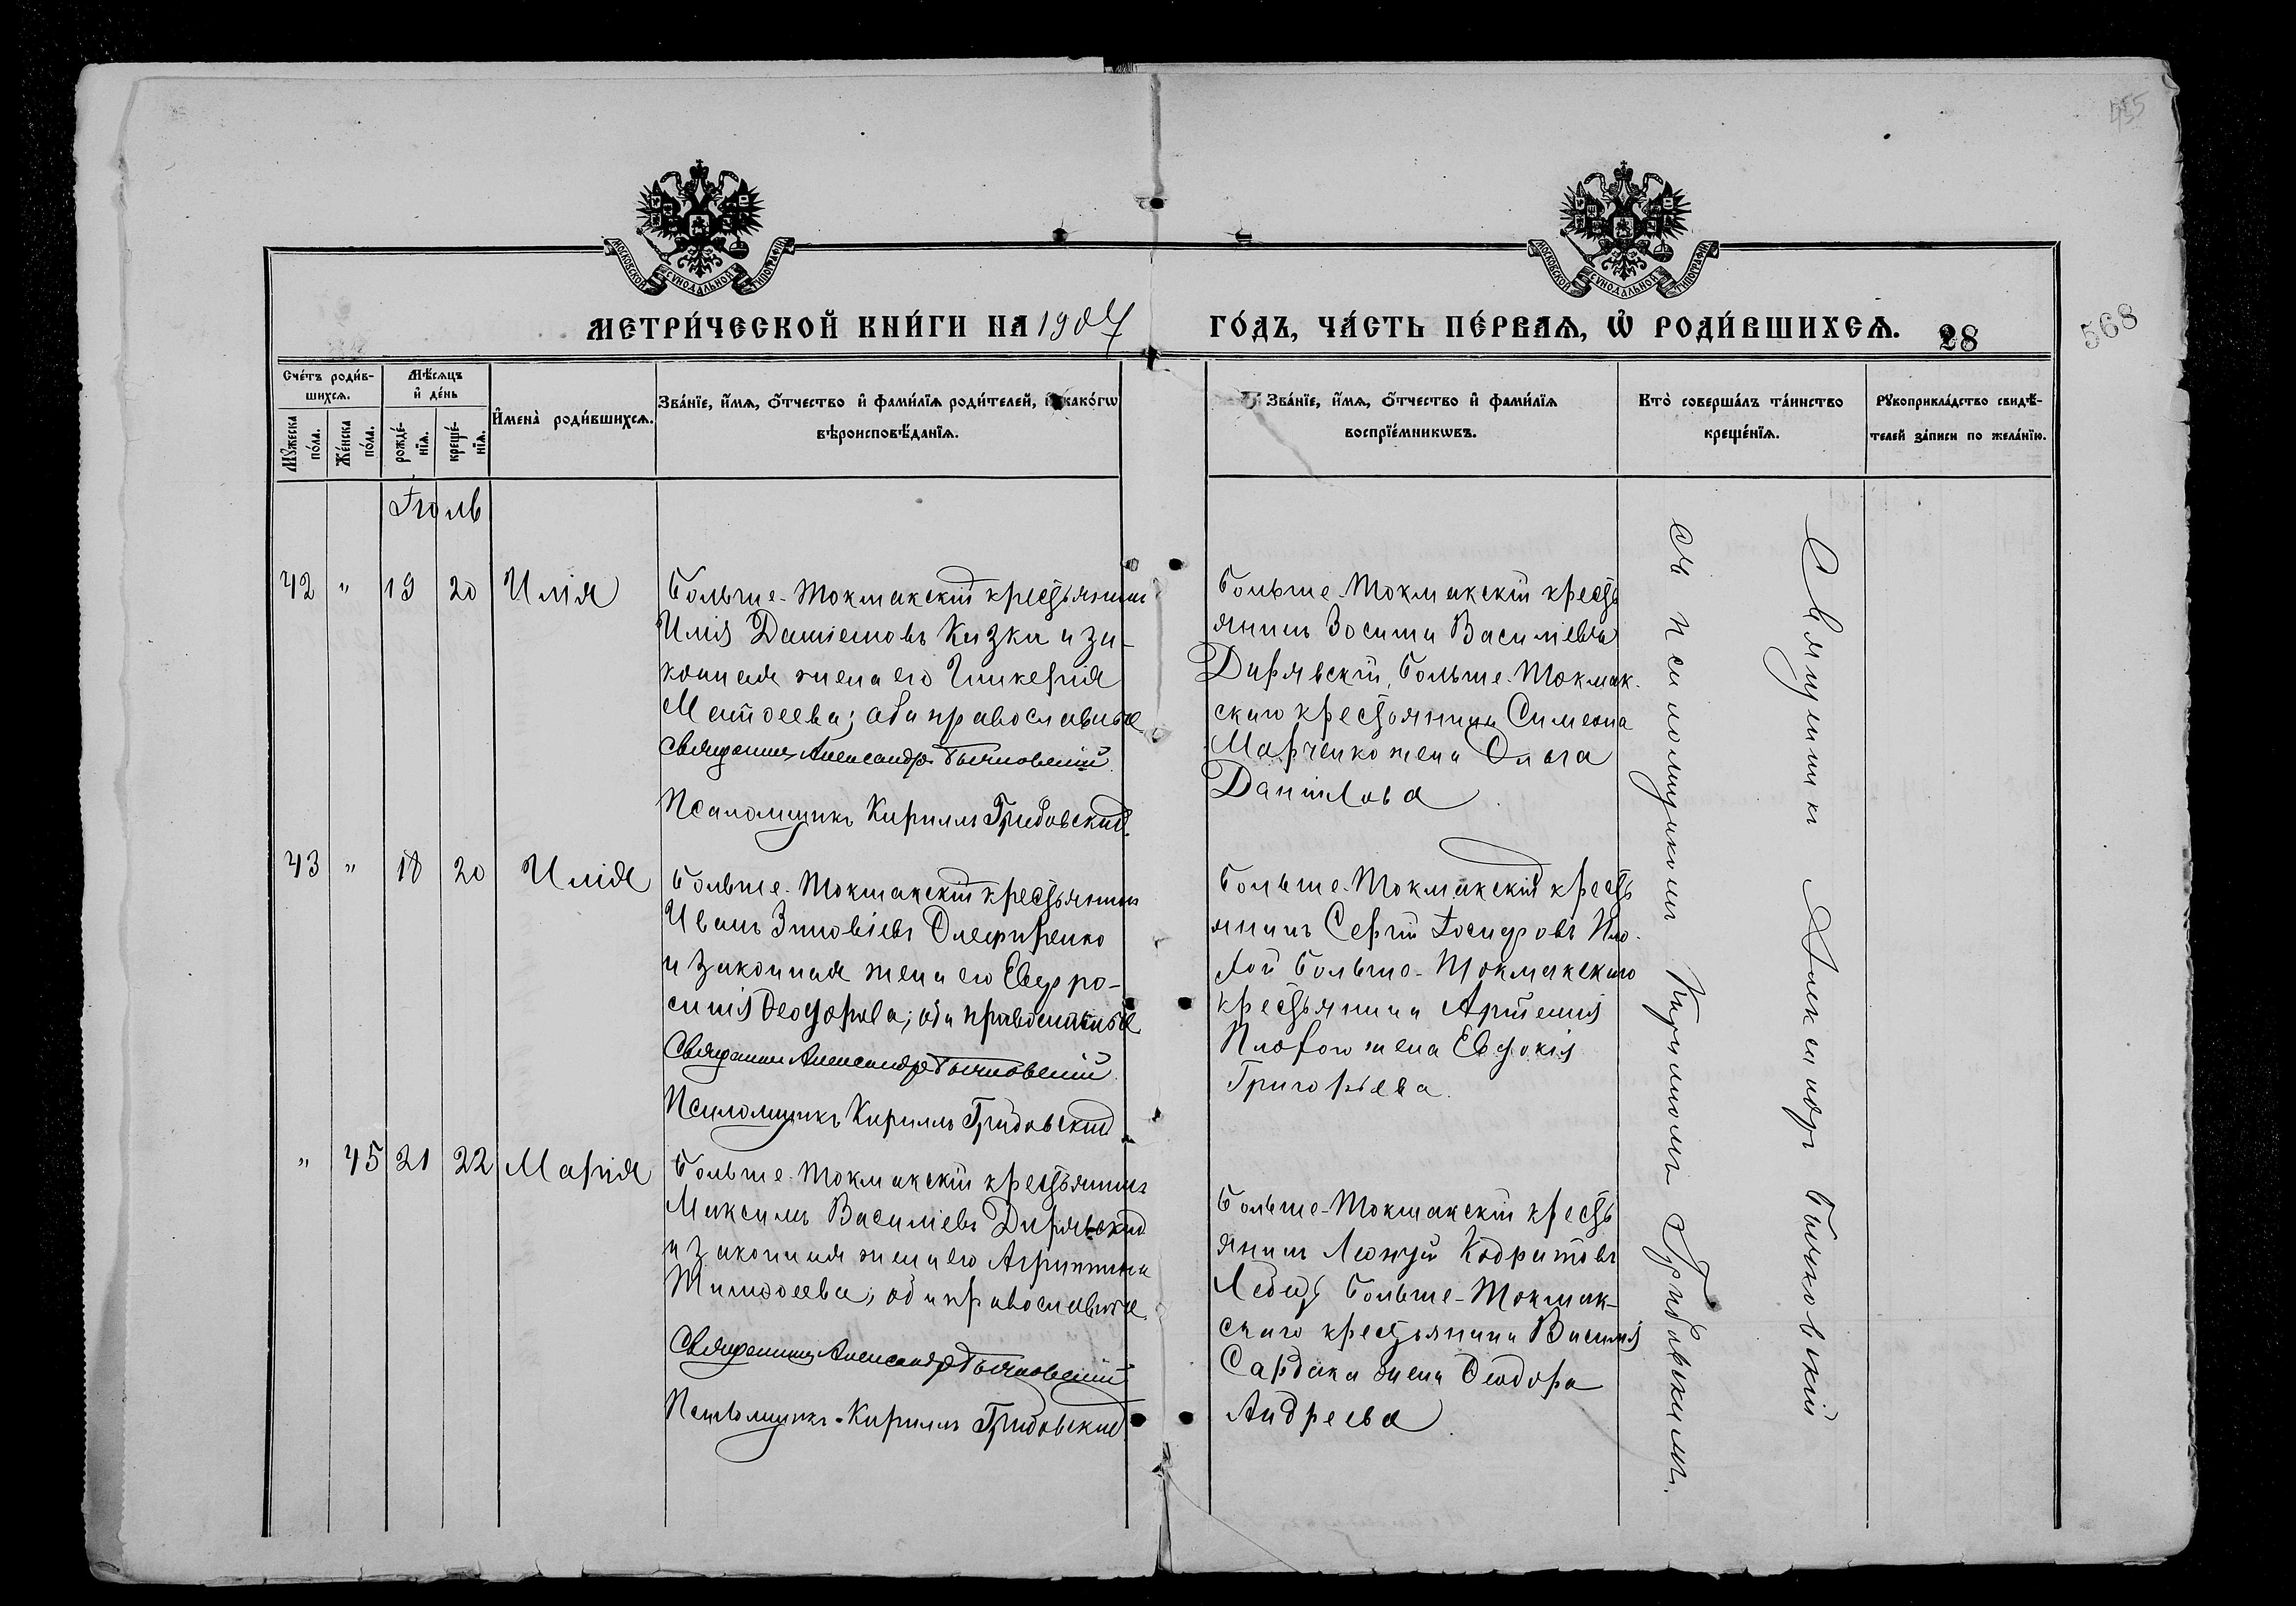 455
МОСКОВСКОЙ СѴНОДАЛЬНОЙ ТИПОГРАФІИ
МОСКОВСКОЙ СѴНОДАЛЬНОЙ ТИПОГРАФІИ
МЕТРИ́ЧЕСКОЙ КНИ́ГИ НА 1904
ГО́ДЪ, ЧА́СТЬ ПЕ́РВАѦ, Ѽ РОДИ́ВШИХСѦ. 28
568
Сче́тъ роди́в-
шихсѧ.
Мѣ́сѧцъ
и҆ де́нь
Мꙋ́жеска по́ла.
Же́нска по́ла.
рожде́-
нїѧ.
креще́-
нїѧ.
И҆мена̀ роди́вшихсѧ.
Зва́нїе, и҆́мѧ, ѻ҆́тчество и҆ фами́лїѧ роди́телей, и҆ како́гѡ
вѣроисповѣ́данїѧ.
Зва́нїе, и҆́мѧ, ѻ҆́тчество и҆ фами́лїѧ
воспрїе́мникѡвъ.
Кто̀ соверша́лъ та́инство
креще́нїѧ.
Рꙋкоприкла́дство свидѣ́-
телей за́писи по жела́нїю.
Іюль
42 " 19 20 Илія
Больше-Токмакскій крестьянинъ
Илія Даниловъ Козка и за-
конная жена его Гликерія
Матѳеева; оба православные
Священникъ Александръ Бычковскій
Псаломщикъ Кириллъ Грибовскій.
Больше-Токмакскій кресть
янинъ Зосима Василіевъ
Дирявскій, Больше-Токмак-
скаго крестьянина Симеона
Марченко жена Ольга
Данилова
43 " 18 20 Илія
Больше-Токмакскій крестьянинъ
Иванъ Зиновіевъ Олефиренко
и законная жена его Евфро-
синія Ѳеодорова; оба православные
Священникъ Александръ Бычковскій
Псаломщикъ Кириллъ Грибовскій
Больше-Токмакскій кресть
янинъ Сергій Іосифовъ Пло-
хой Больше-Токмакскаго
крестьянина Артемія
Плохого жена Евдокія
Григорьева.
" 45 21 22 Марія
Больше-Токмакскій крестьянинъ
Максимъ Василіевъ Дирявскій
и законная жена его Агриппина
Тимоѳеева; оба православные
Священникъ Александръ Бычковскій
Псаломщикъ Кириллъ Грибовскій
Больше-Токмакскій кресть
янинъ Кодратовъ
Лебедь Больше-Токмак-
скаго крестьянина Василія
Сардака жена Ѳеодора
Андреева
Священникъ Александръ Бычковскій
съ псаломщикомъ Кирилломъ Грибовскимъ.